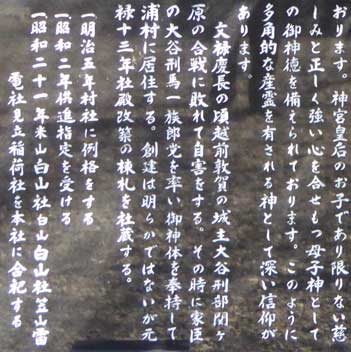 おります。神宮皇后のお子であり限りない慈
しみと正しく強い心を合せもつ母子神として
の御神徳を備えられております。このように
多角的な産霊を有される神として深い信仰が
あります。
文禄慶長の頃越前敦賀の城主大谷刑部関ヶ
原の合戦に敗れて自害をする。その時に家臣
の大谷刑馬一族郎党を率い御神体を奉持して
浦村に居住する。創建は明らかではないが元
禄十三年社殿改築の棟札を社蔵する。
一明治五年村社に例格をする
一昭和二年供進指定を受ける
一昭和二十一年米山白山社白山白山社笠山雷
電社見立稲荷社を本社に合祀する